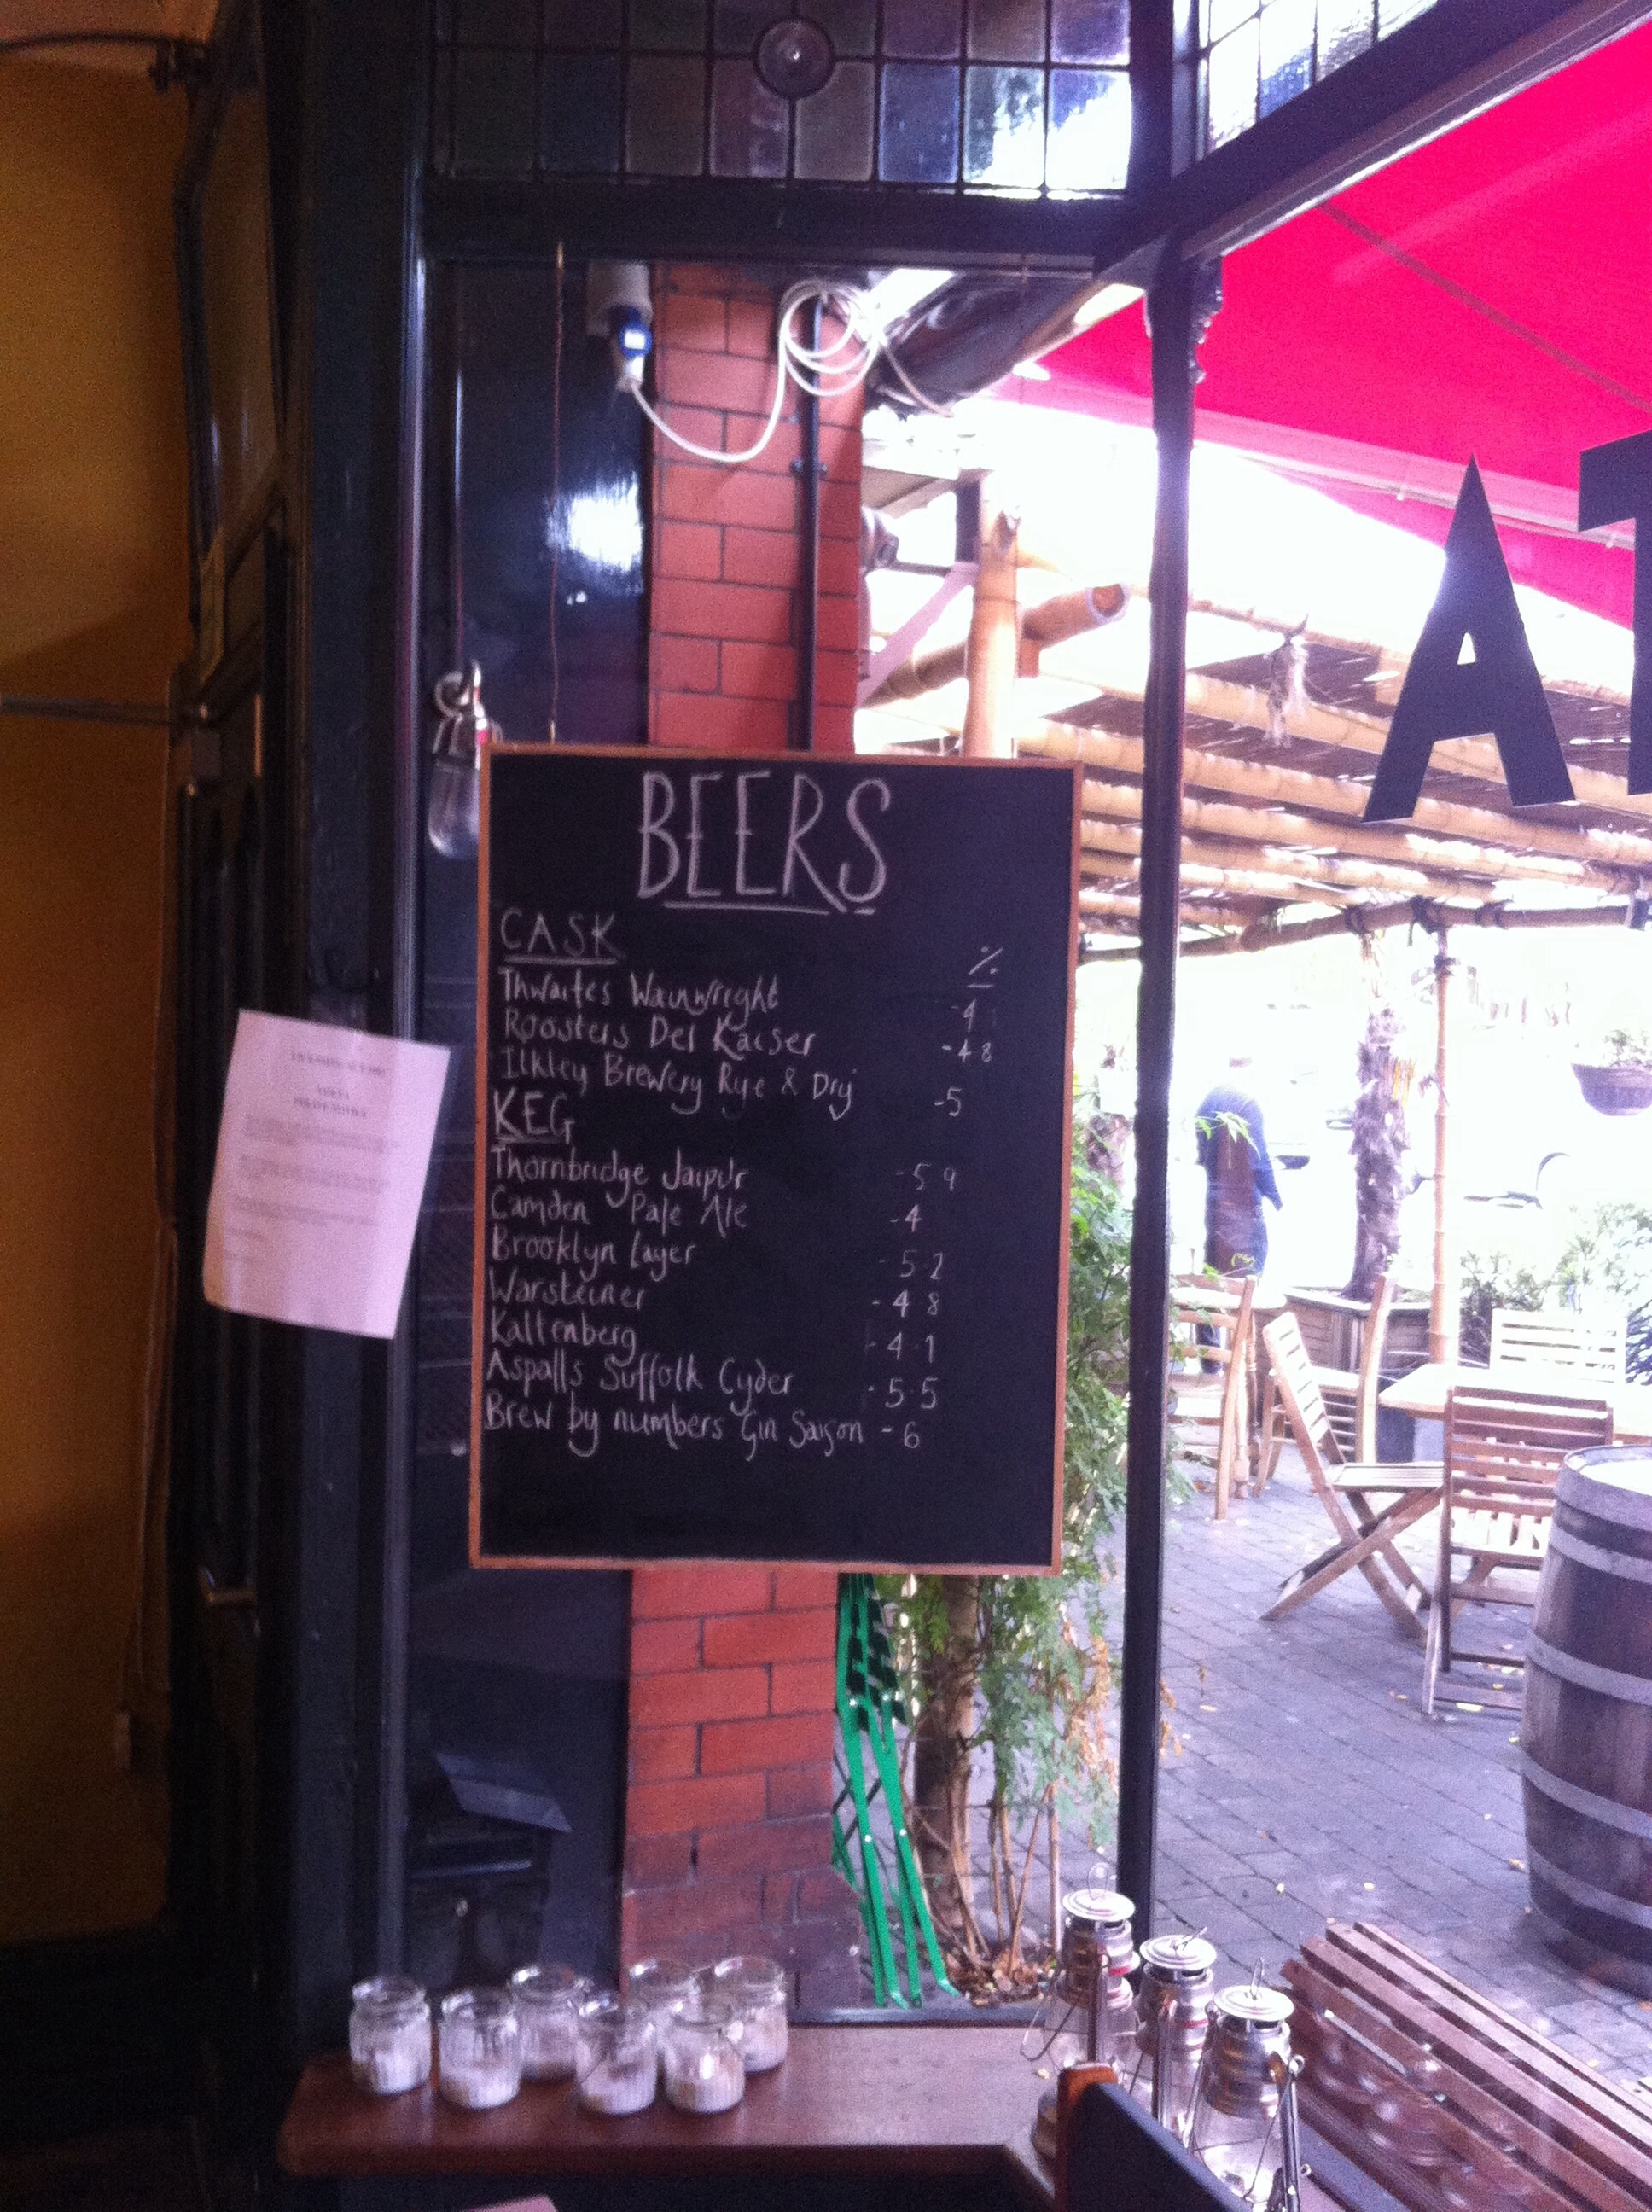 BEERS
CASK
%
Thwaites Wainwright -4.1
Roosters Del Kaiser -4.8
Ilkley Brewery Rye & Dry -5
KEG
Thornbridge Jaipur -5.9
Camden Pale Ale -4
Brooklyn Lager -5.2
Warsteiner -4.8
Kaltenberg -4.1
Aspalls Suffolk Cyder -5.5
Brew by numbers Gin Saison -6
AT